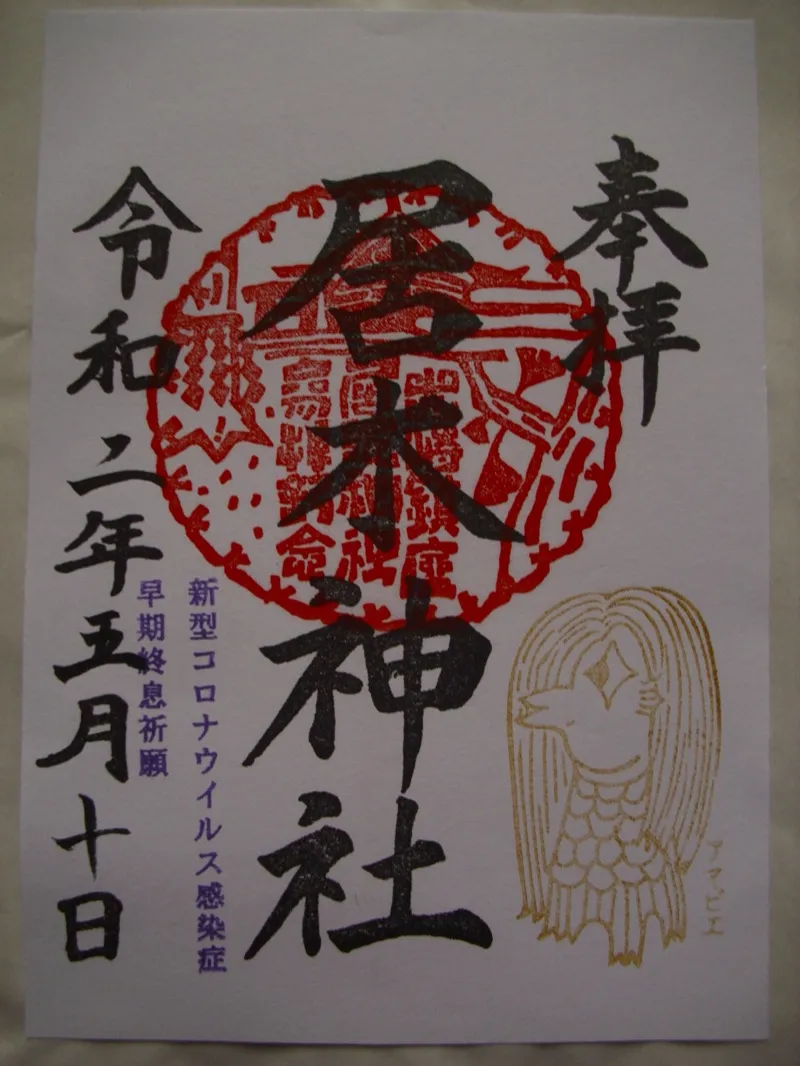 奉拝
居木神社
令和二年五月十日
新型コロナウイルス感染症
早期終息祈願
アマビエ